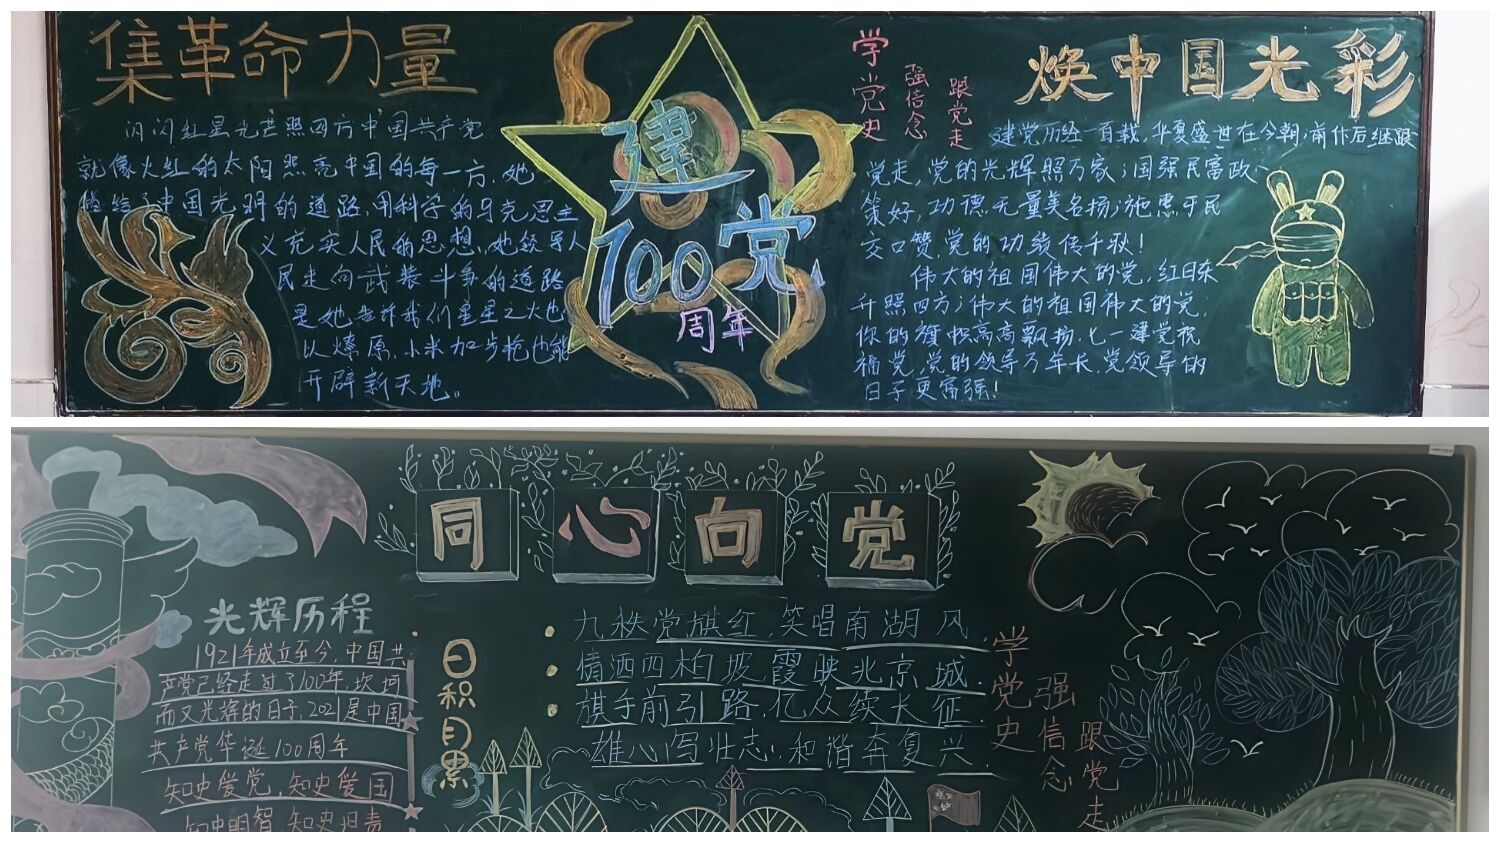 集革命力量
闪闪红星光芒照四方中国共产党
就像火红的太阳照亮中国的每一方，她
中国光明的道路，用科学的马克思主
义充实人民的思想，她领导人
民走向武装斗争的道路
是她告诉我们星星之火也
以燎原，小米加步枪也能
开辟新天地。
建党
100
周年
学党史
强信念
跟党走
焕中国光彩
建党历经一百载，华夏盛世在今朝，前仆后继跟
党走，党的光辉照万家；国强民富政
策好，功德无量美名扬；施惠于民
交口赞，党的功绩传千秋！
伟大的祖国伟大的党，红日东
升照四方；伟大的祖国伟大的党，
你的旗帜高高飘扬，七一建党祝
福党，党的领导万年长，党领导的
日子更富强！
同心向党
光辉历程
1921年成立至今，中国共
产党已经走过了100年坎坷
而又光辉的日子，2021是中国
共产党华诞100周年
知史爱党，知史爱国
知史明智，知史担责
日积月累
九秩党旗红，笑唱南湖风。
情洒西柏坡，霞映北京城。
旗手前引路，亿众续长征。
雄心写壮志，和谐奔复兴。
学党史
强信念
跟党走